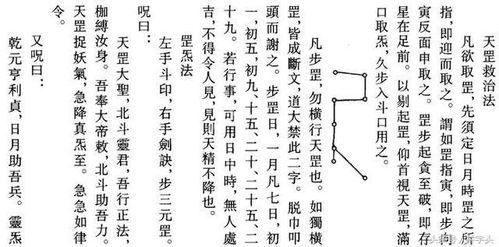 天罡救治法
凡欲取罡，先須定日月時罡之所
指，即迎而取之。謂如罡指寅，即步向
寅反面申取之。罡步起貪至破，即存
星在足前。以剔起罡，仰首視天罡，滿
口取炁，久步入斗口用之。
凡步罡，勿橫行天罡也。如獨橫
罡，皆成斷文，道大禁此二字。脫巾叩
頭而謝之。步罡日，一月凡七日，初
一，初五，初九、十五、二十、二十五、二
十九。若行事，可用日中時，無人處
吉，不得令人見，見則天精不降也。
罡炁法
左手斗印，右手劍訣，步三元罡。
呪曰：
天罡大聖，北斗靈君，吾行正法，
枷縛汝身。吾奉大帝敕，北斗助吾力。
天罡捉妖氣，急降真炁至。急急如律
令。
又呪曰：
乾元亨利貞，日月助吾兵。靈炁